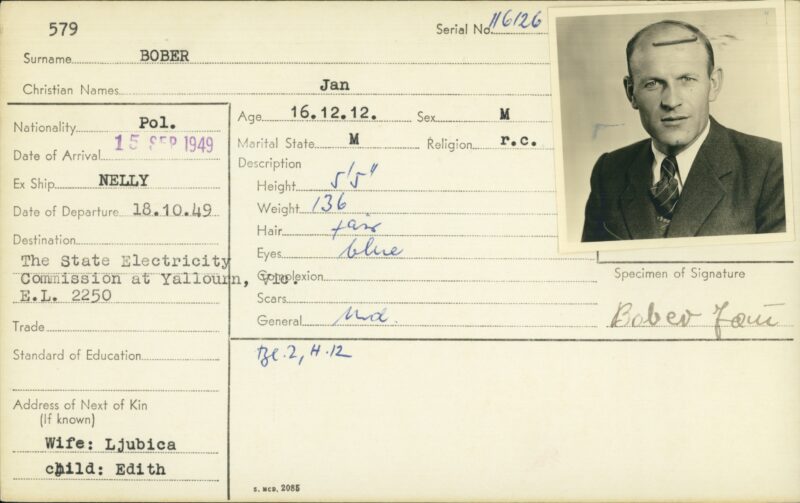 579
Serial No. 116126
Surname BOBER
Christian Names Jan
Nationality Pol.
Date of Arrival 15 SEP 1949
Ex Ship NELLY
Date of Departure 18.10.49
Destination
The State Electricity
Commission at Yallourn, Vic.
E.L. 2250
Trade
Standard of Education
Address of Next of Kin
(If known)
Wife: Ljubica
child: Edith
Age 16.12.12. Sex M
Marital State M Religion r.c.
Description
Height 5'5"
Weight 136
Hair fair
Eyes blue
Complexion
Scars
General
Bl. 2, H.12
Specimen of Signature
Bober Jan
S. MCD. 2085